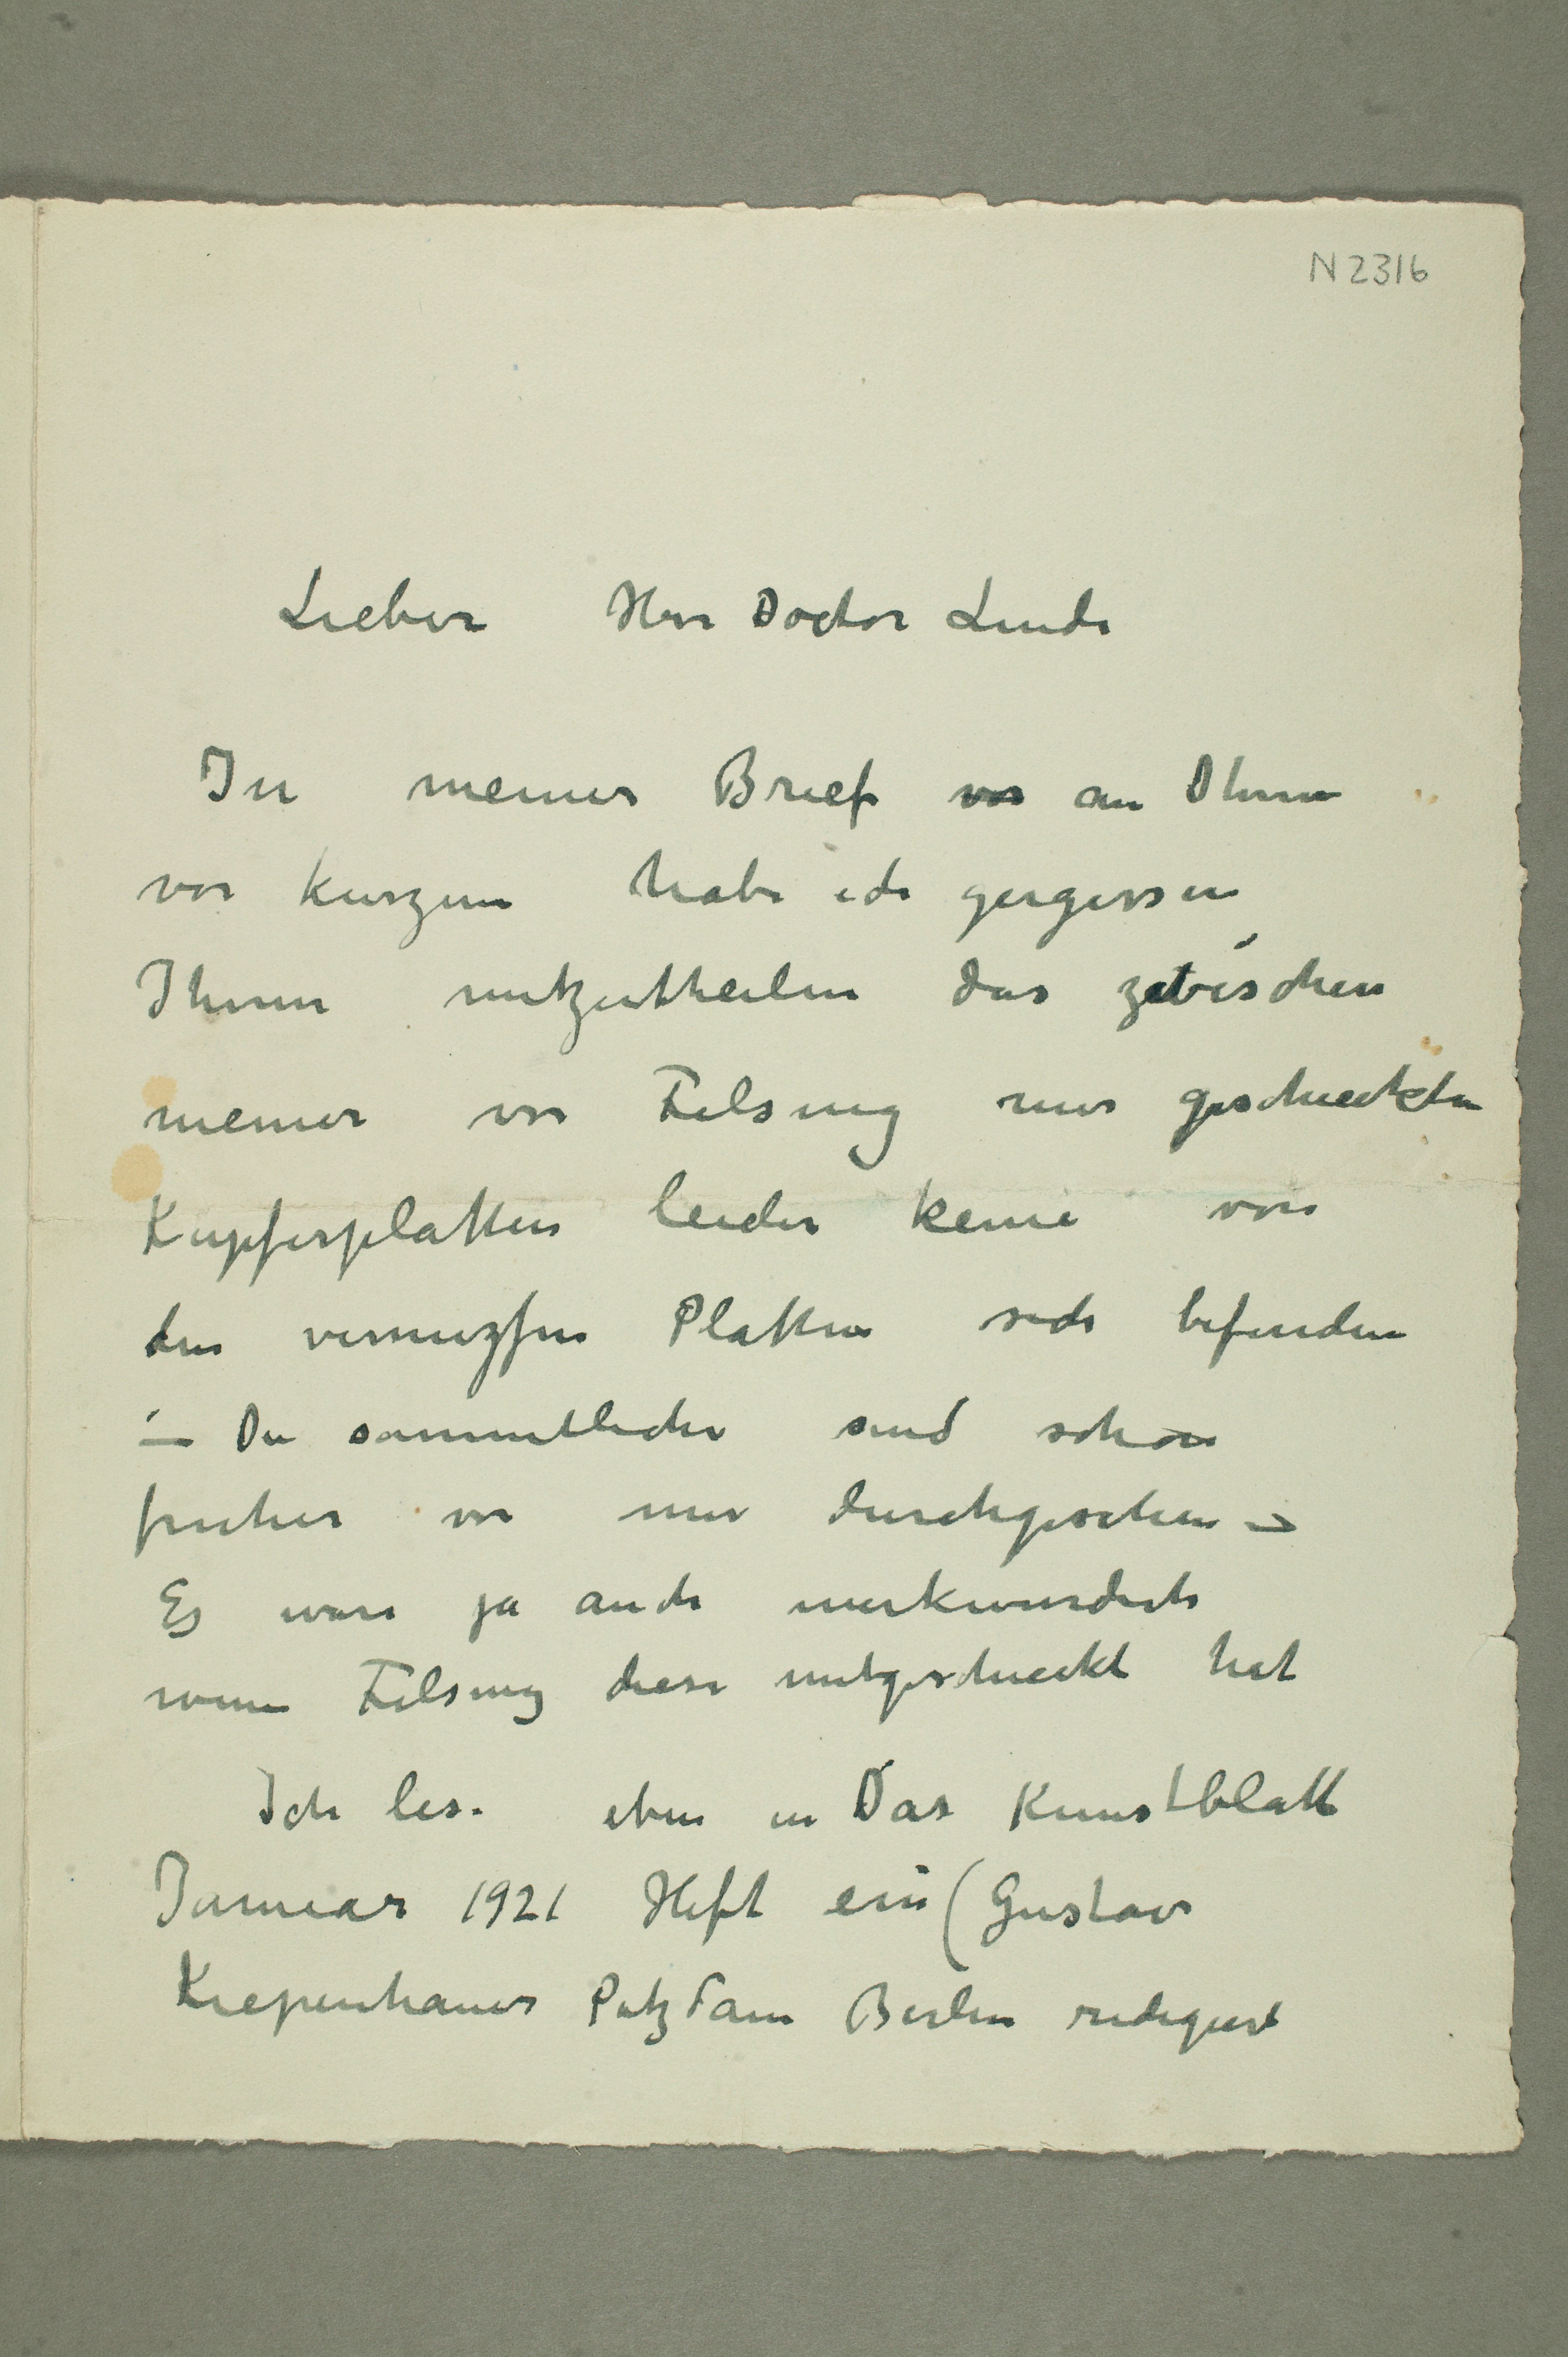 N 2316
Lieber Herr Doctor Linde
In meiner Brief vor an Ihnen
vor kurzem habe ich gergessen
Ihnen mitzutheilen das zwischen
meiner von Felsing mir geschickten
Kupferplatten leider keine von
den vermizsten Platten sich befinden
— Die sammtliche sind schon
fruher von mir durchgesehen —
Es ware ja auch merkwurdich
wenn Felsing diese mitgeschickt hat
Ich lese eben in Das Kunstblatt
Januar 1921 Heft ein (Gustav
Kiepenhauer Potzdam Berlin redigiert